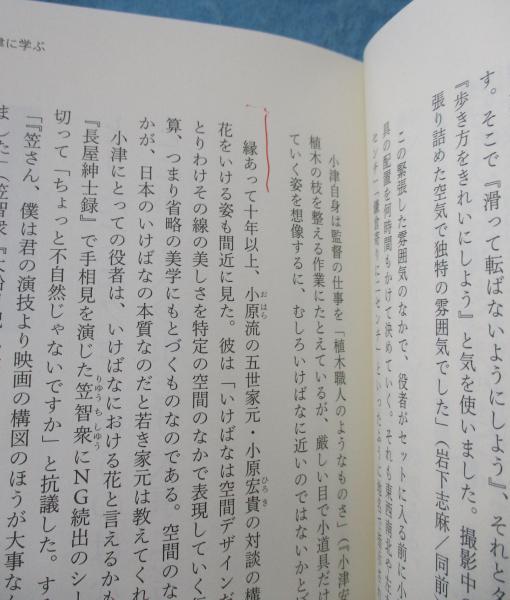 に学ぶ
す。そこで『滑って転ばないようにしよう』、それとタ
『歩き方をきれいにしよう』と気を使いました。撮影中の
張り詰めた空気で独特の雰囲気でした」（岩下志麻／同前
この緊張した雰囲気のなかで、役者がセットに入る前に小
具の配置を何時間もかけて決めていく。それも東西南北や
小津自身は監督の仕事を「植木職人のようなものさ」（『小津安
植木の枝を整える作業にたとえているが、厳しい目で小道具だけ
ていく姿を想像するに、むしろいけばなに近いのではないかと
縁あって十年以上、小原流の五世家元・小原宏貴の対談の構
花をいける姿も間近に見た。彼は「いけばなは空間デザインだ
とりわけその線の美しさを特定の空間のなかで表現していく行
算、つまり省略の美学にもとづくものなのである。空間のな
かが、日本のいけばなの本質なのだと若き家元は教えてくれ
小津にとっての役者は、いけばなにおける花と言えるかも
『長屋紳士録』で手相見を演じた笠智衆にNG続出のシー
切って「ちょっと不自然じゃないですか」と抗議した。す
「『笠さん、僕は君の演技より映画の構図のほうが大事な
ました」（笠智衆